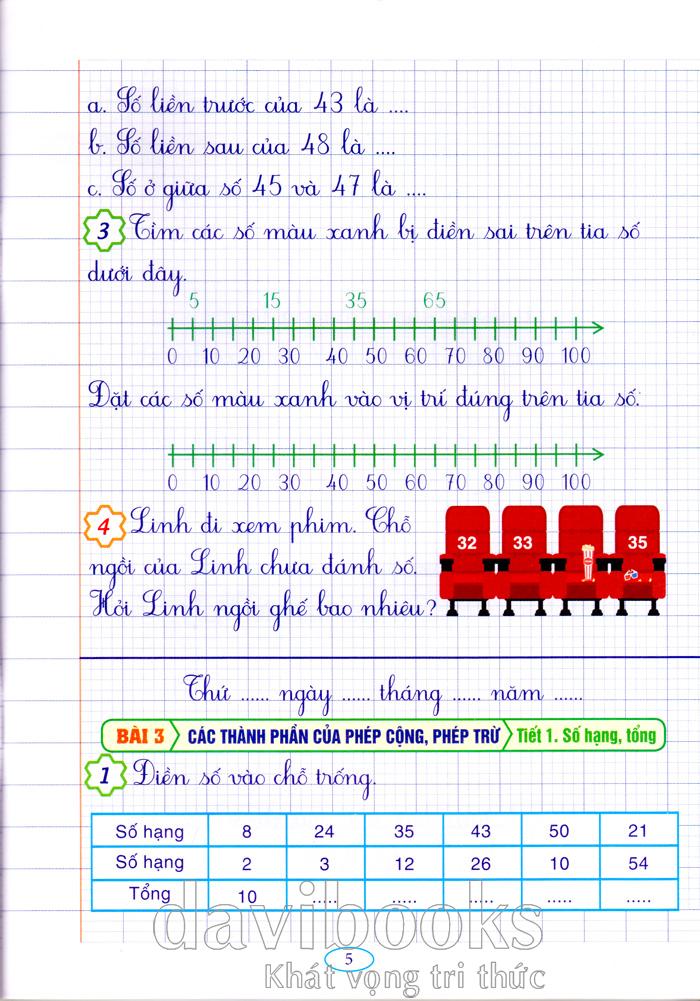 a. Số liền trước của 43 là ....
b. Số liền sau của 48 là ....
c. Số ở giữa số 45 và 47 là ....
3 Tìm các số màu xanh bị điền sai trên tia số
dưới đây.
5 15 45 65
0 10 20 30 40 50 60 70 80 90 100
Đặt các số màu xanh vào vị trí đúng trên tia số:
0 10 20 30 40 50 60 70 80 90 100
4 Linh đi xem phim. Chỗ
ngồi của Linh chưa đánh số.
Hỏi Linh ngồi ghế bao nhiêu?
32 33 35
Thứ ...... ngày ...... tháng ...... năm ......
BÀI 3 CÁC THÀNH PHẦN CỦA PHÉP CỘNG, PHÉP TRỪ Tiết 1. Số hạng, tổng
1 Điền số vào chỗ trống.
Số hạng 8 24 35 43 50 21
Số hạng 2 3 12 26 10 54
Tổng 10 ..... ..... ..... ..... .....
davibooks
5
Khát vọng tri thức